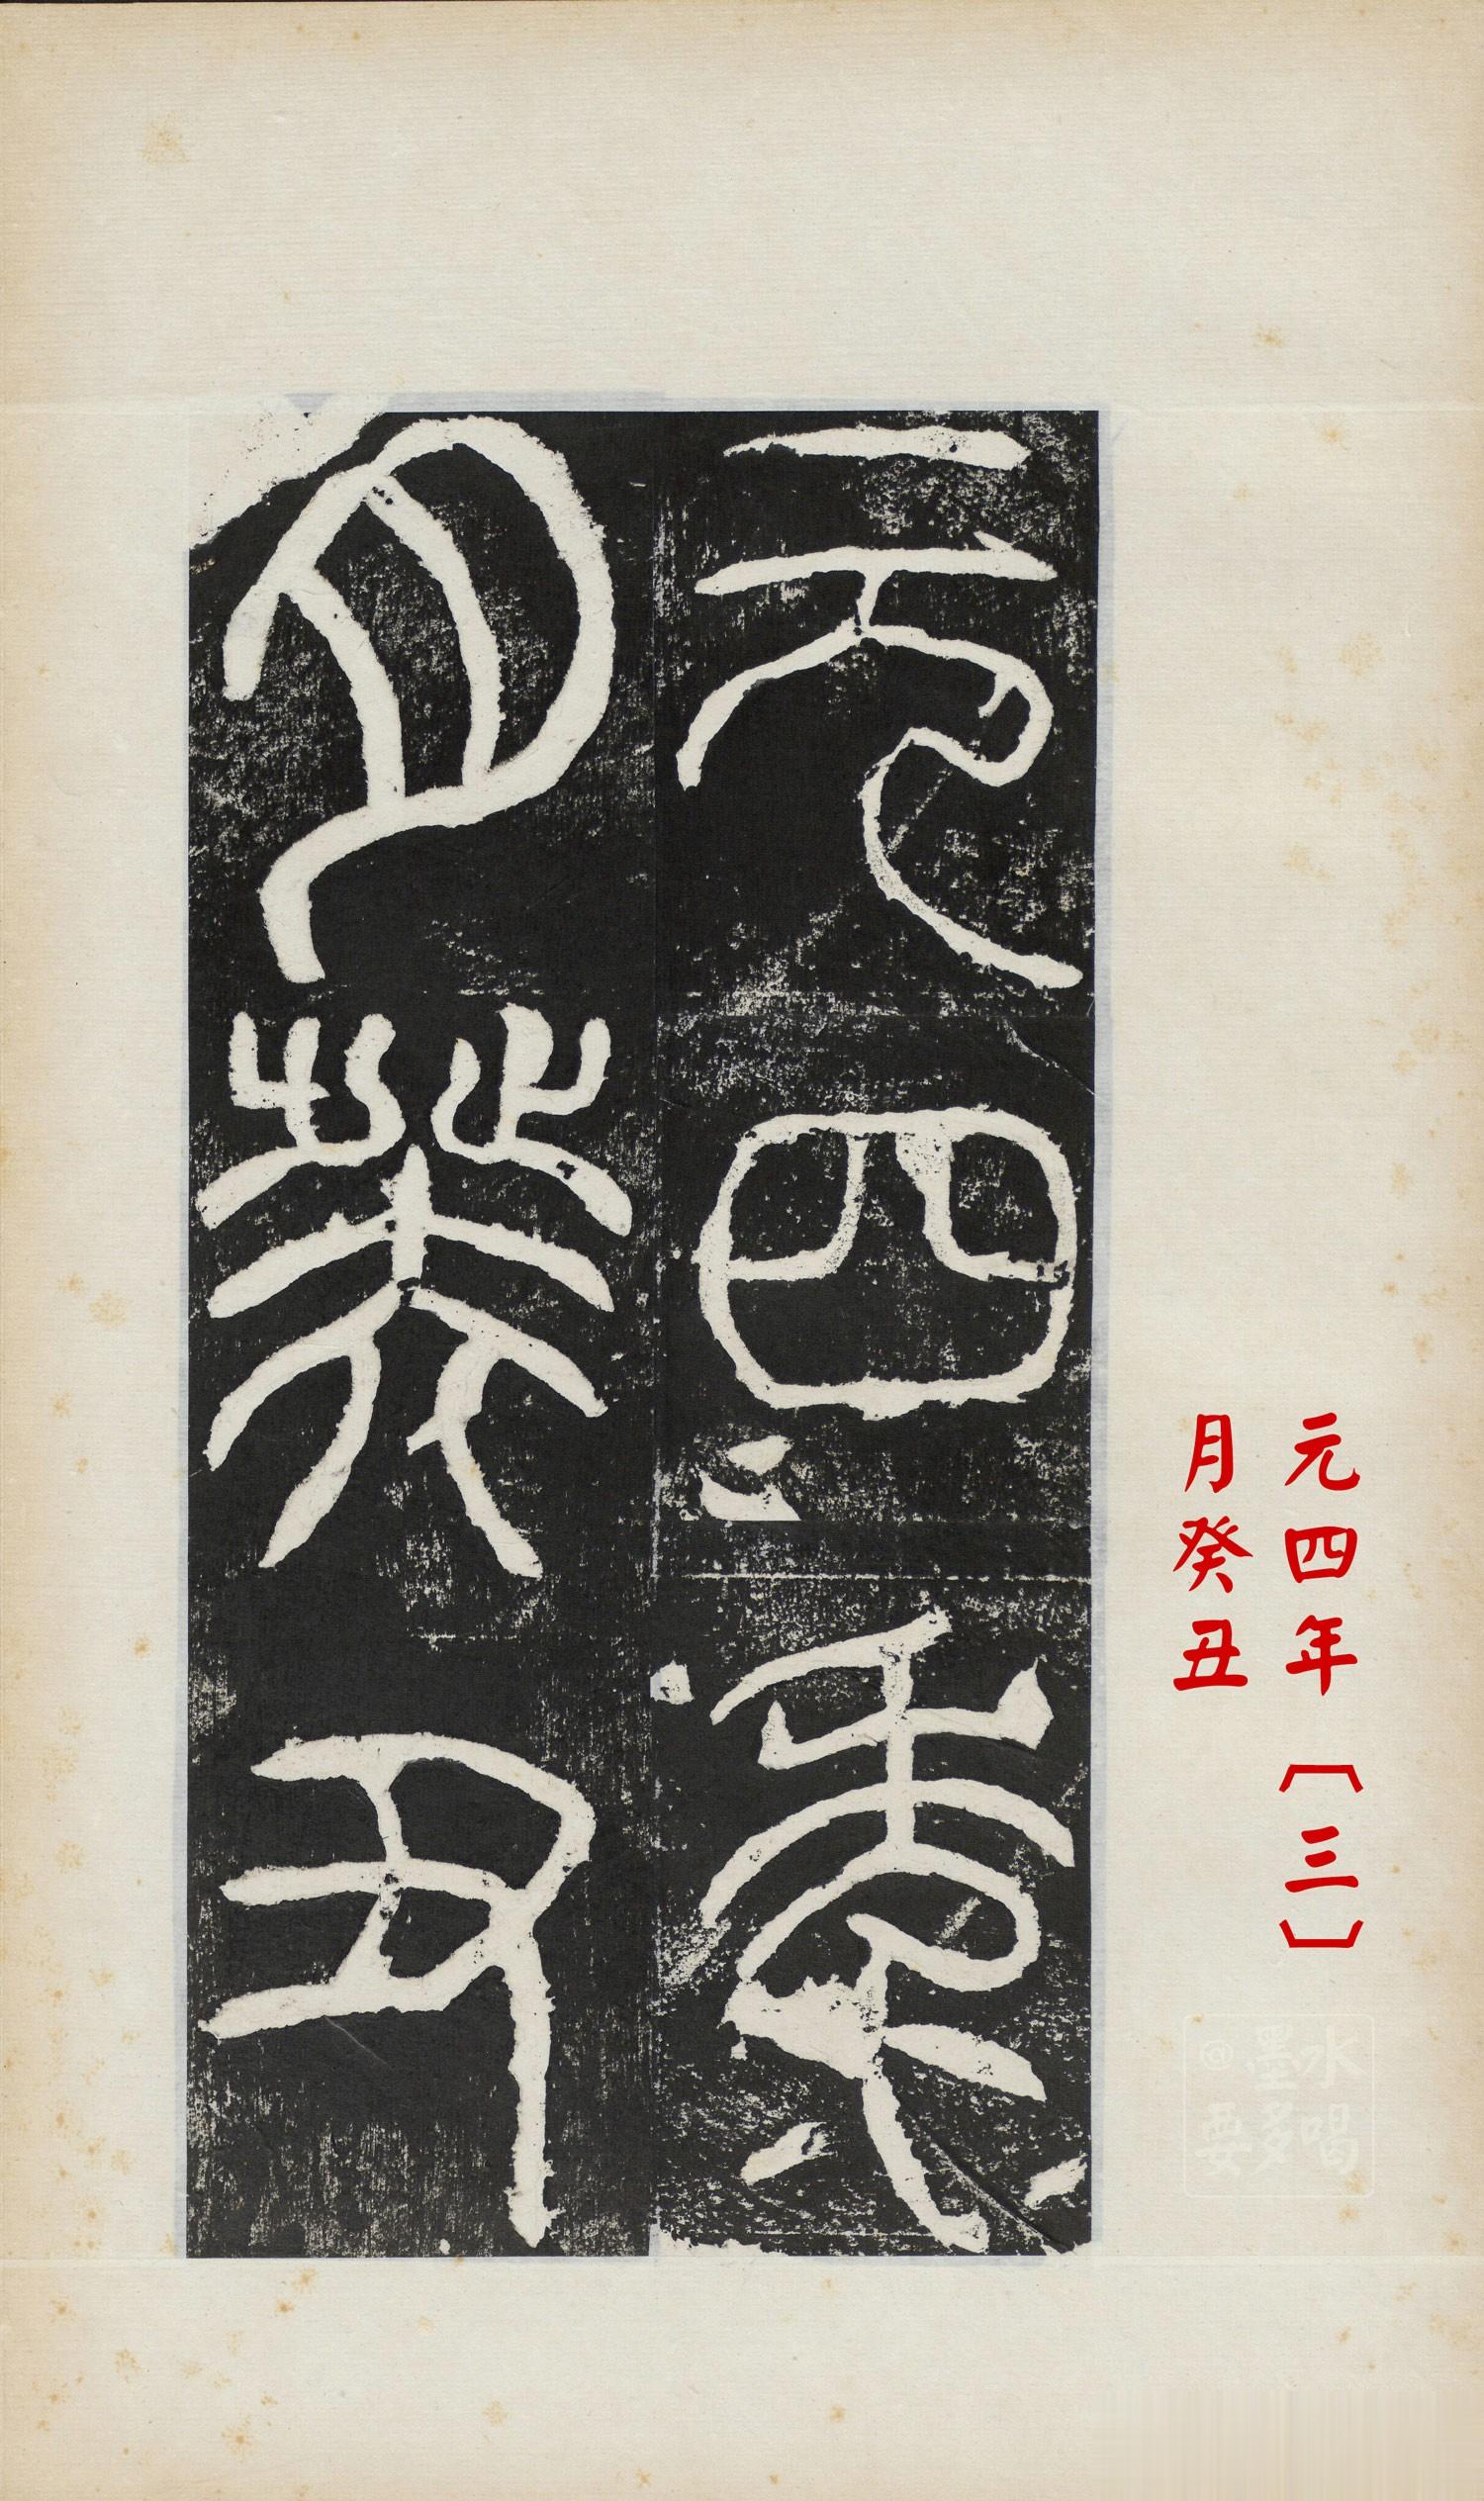 元四年
月癸丑
元四年〔三〕
月癸丑
@墨水
要多喝